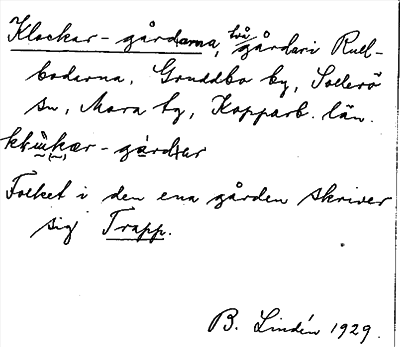 Klockar-gårdarna, två gårdar i Rull-
boderna, Gruddbo by, Sollerö
sn, Mora tg, Kopparb. län.
Folket i den ena gården skriver
sig Trapp.
B. Lindén 1929.